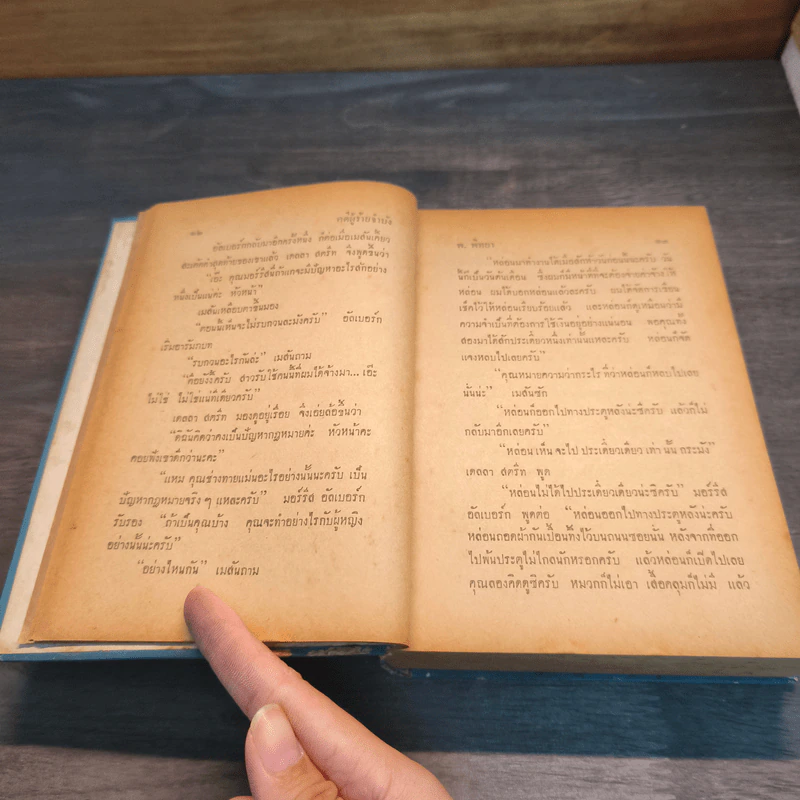 ๑๒ คดีผู้ร้ายจำบัง
อัลเบอร์กกลับมาอีกครั้งหนึ่ง ก็ต่อเมื่อเมสันเคี้ยว
สเต๊คคำสุดท้ายของเขาแล้ว เดลลา สตรีท จึงพูดขึ้นว่า
“เอ๊ะ คุณมอร์ริสนี่ถ้าแกจะมีปัญหาอะไรสักอย่าง
หนึ่งเป็นแน่ค่ะ หัวหน้า”
เมสันเหลือบตาขึ้นมอง
“ตอนนี้เห็นจะไม่รบกวนละมังครับ” อัลเบอร์ก
เริ่มอารัมภบท
“รบกวนอะไรกันล่ะ” เมสันถาม
“คืออย่างงี้ครับ สาวรับใช้คนนี้ที่ผมได้จ้างมา... เอ๊ะ
ไม่ใช่ ไม่ใช่แน่ทีเดียวครับ”
เดลลา สตรีท มองดูอยู่เรื่อย จึงเอ่ยล้อขึ้นว่า
“ดิฉันคิดว่าคงเป็นปัญหากฎหมายค่ะ หัวหน้าคะ
คอยฟังเขาดีกว่านะคะ”
“แหม คุณช่างทายแม่นอะไรอย่างนั้นนะครับ เป็น
ปัญหากฎหมายจริง ๆ แหละครับ” มอร์ริส อัลเบอร์ก
รับรอง “ถ้าเป็นคุณบ้าง คุณจะทำอย่างไรกับผู้หญิง
อย่างนั้นนะครับ”
“อย่างไหนกัน” เมสันถาม
ต. พิทยา ๑๓
“หล่อนมาทำงานได้เมื่ออาทิตย์ก่อนนี้นะครับ วัน
นี้ก็เป็นวันต้นเดือน ซึ่งผมก็มีหน้าที่จะต้องจ่ายค่าจ้างให้
หล่อน ผมได้บอกหล่อนแล้วละครับ ผมได้จัดการเขียน
เช็คไว้ให้หล่อนเรียบร้อยแล้ว และหล่อนก็ดูเหมือนว่ามี
ความจำเป็นที่ต้องการใช้เงินอยู่อย่างแน่นอน พอคุณทั้ง
สองมาได้สักประเดี๋ยวหนึ่งเท่านั้นแหละครับ หล่อนก็จัด
แจงหลบไปเลยครับ”
“คุณหมายความว่ากระไร ที่ว่าหล่อนก็หลบไปเลย
นั้นน่ะ” เมสันซัก
“หล่อนก็ออกไปทางประตูหลังน่ะซีครับ แล้วก็ไม่
กลับมาอีกเลยครับ”
“หล่อนเห็นจะไปประเดี๋ยวเดียวเท่านั้นกระมัง”
เดลลา สตรีท พูด
“หล่อนไม่ได้ไปประเดี๋ยวเดียวน่ะซิครับ” มอร์ริส
อัลเบอร์ก พูดต่อ “หล่อนออกไปทางประตูหลังน่ะครับ
หล่อนถอดผ้ากันเปื้อนทิ้งไว้บนถนนซอยนั้น หลังจากที่ออก
ไปพ้นประตูไม่ไกลนักหรอกครับ แล้วหล่อนก็เปิดไปเลย
คุณลองคิดดูซิครับ หมวกก็ไม่เอา เสื้อคลุมก็ไม่มี แล้ว